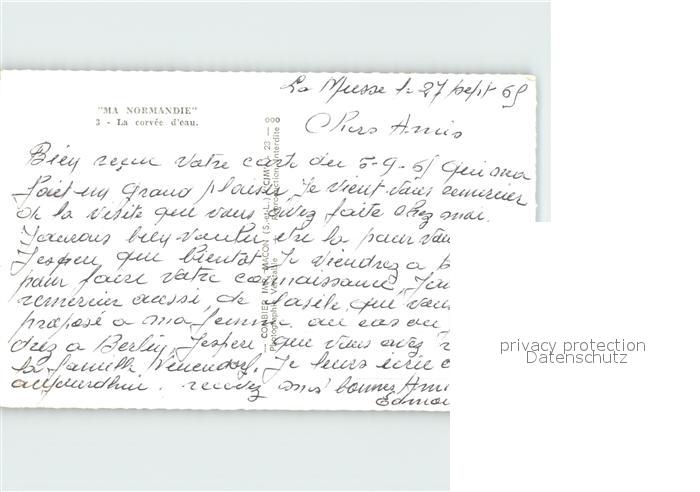 La Musse le 27 sept 65
"MA NORMANDIE"
3 - La corvée d'eau.
Chers Amis
Bien reçu votre carte du 5-9-65 qui ma
fait un grand plaisir. Je vient vous remercier
de la visite que vous avez faite chez moi.
J'aurais bien voulu être la pour vous
J'espère que bientot Je viendrez a
pour faire votre connaissance, J
remercier aussi, de l'asile que vous
proposé a ma femme, au cas ou
drez a Berlin, J'espere que vous avez
la famille Je leurs écrie
aujourdhui. recevez mes bonnes Ami
Edmon
COMBIER IMP. MACON (S.-et-L.) "CIM" 23 —
Photographie Véritable - Reproduction interdite
privacy protection
Datenschutz